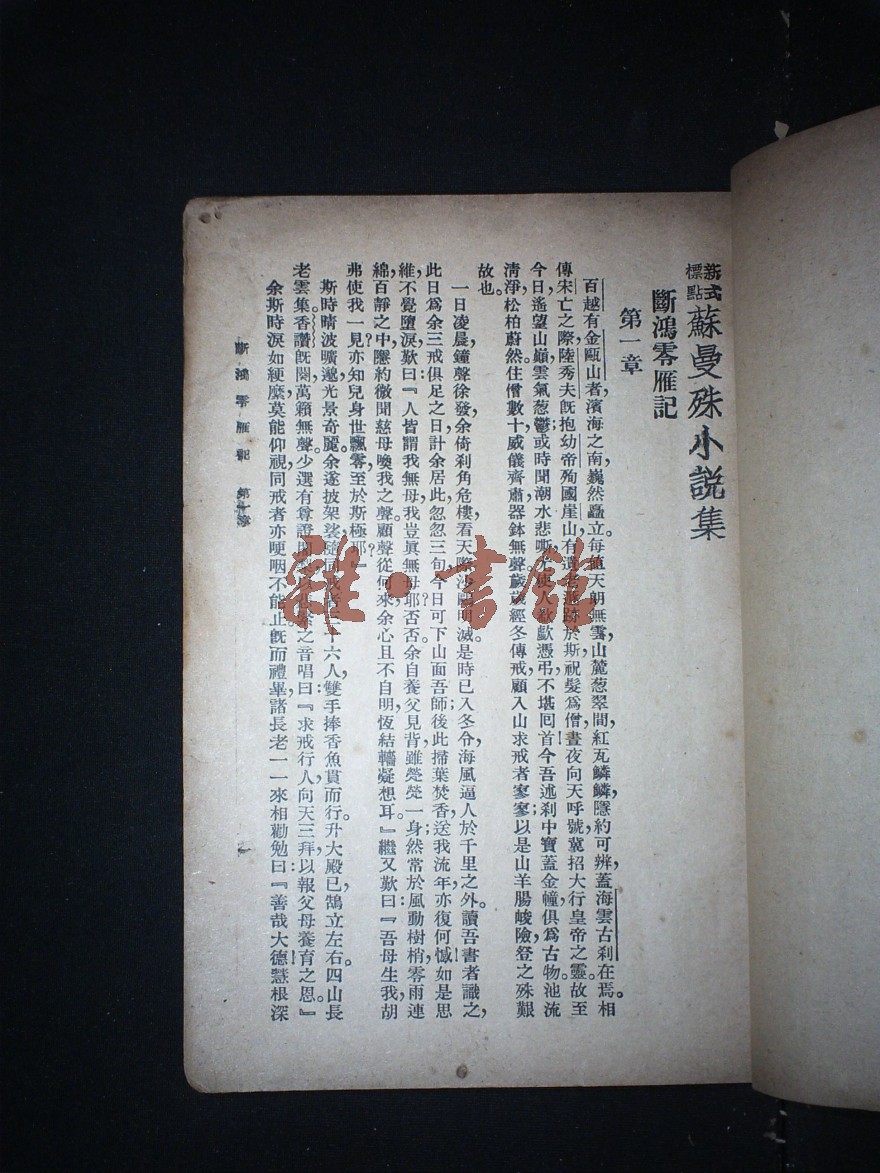 新式標點蘇曼殊小說集
斷鴻零雁記
第一章
百越有金甌山者,濱海之南,巍然矗立。每値天朗無雲,山麓葱翠間,紅瓦鱗鱗,隱約可辨,蓋海雲古刹在焉。相
傳宋亡之際,陸秀夫旣抱幼帝殉國崖山,有遺老遁跡於斯,祝髮爲僧,晝夜向天呼號,冀招大行皇帝之靈。故至
今日,遙望山巓,雲氣葱鬱;或時聞潮水悲嘶,尤使人欷歔憑弔,不堪回首。今吾述刹中寶蓋金幢,俱爲古物。池流
淸淨,松柏蔚然。住僧數十,威儀齊肅,器鉢無聲。歲歲經冬傳戒,顧入山求戒者寥寥,以是山羊腸峻險,登之殊艱
故也。
一日凌晨,鐘聲徐發,余倚刹角危樓,看天際沙鷗明滅。是時已入冬令,海風逼人於千里之外。讀吾書者識之,
此日爲余三戒俱足之日。計余居此忽忽三旬,今日可下山面吾師。後此掃葉焚香,送我流年,亦復何憾?如是思
維,不覺墮淚,歎曰:『人皆謂我無母,我豈眞無母耶?否,否。余自養父見背,雖煢煢一身,然常於風動樹梢,零雨連
綿,百靜之中,隱約微聞慈母喚我之聲。顧聲從何來,余心且不自明,恆結轖凝想耳。』繼又歎曰:『吾母生我,胡
弗使我一見?亦知兒身世飄零,至於斯極耶?』
斯時晴波曠邈,光景奇麗。余遂披架裟,隨同戒者三十六人,雙手捧香魚貫而行。升大殿已,鵠立左右。四山長
老雲集。香讚旣闋,萬籟無聲。少選,有尊證闍之音唱曰:『求戒行人,向天三拜,以報父母養育之恩。』
余斯時淚如綆縻,莫能仰視,同戒者亦哽咽不能止。旣而禮畢,諸長老一一來相勸勉曰:『善哉大德!慧根深
斷鴻零雁記 第一章
一
雜·書館